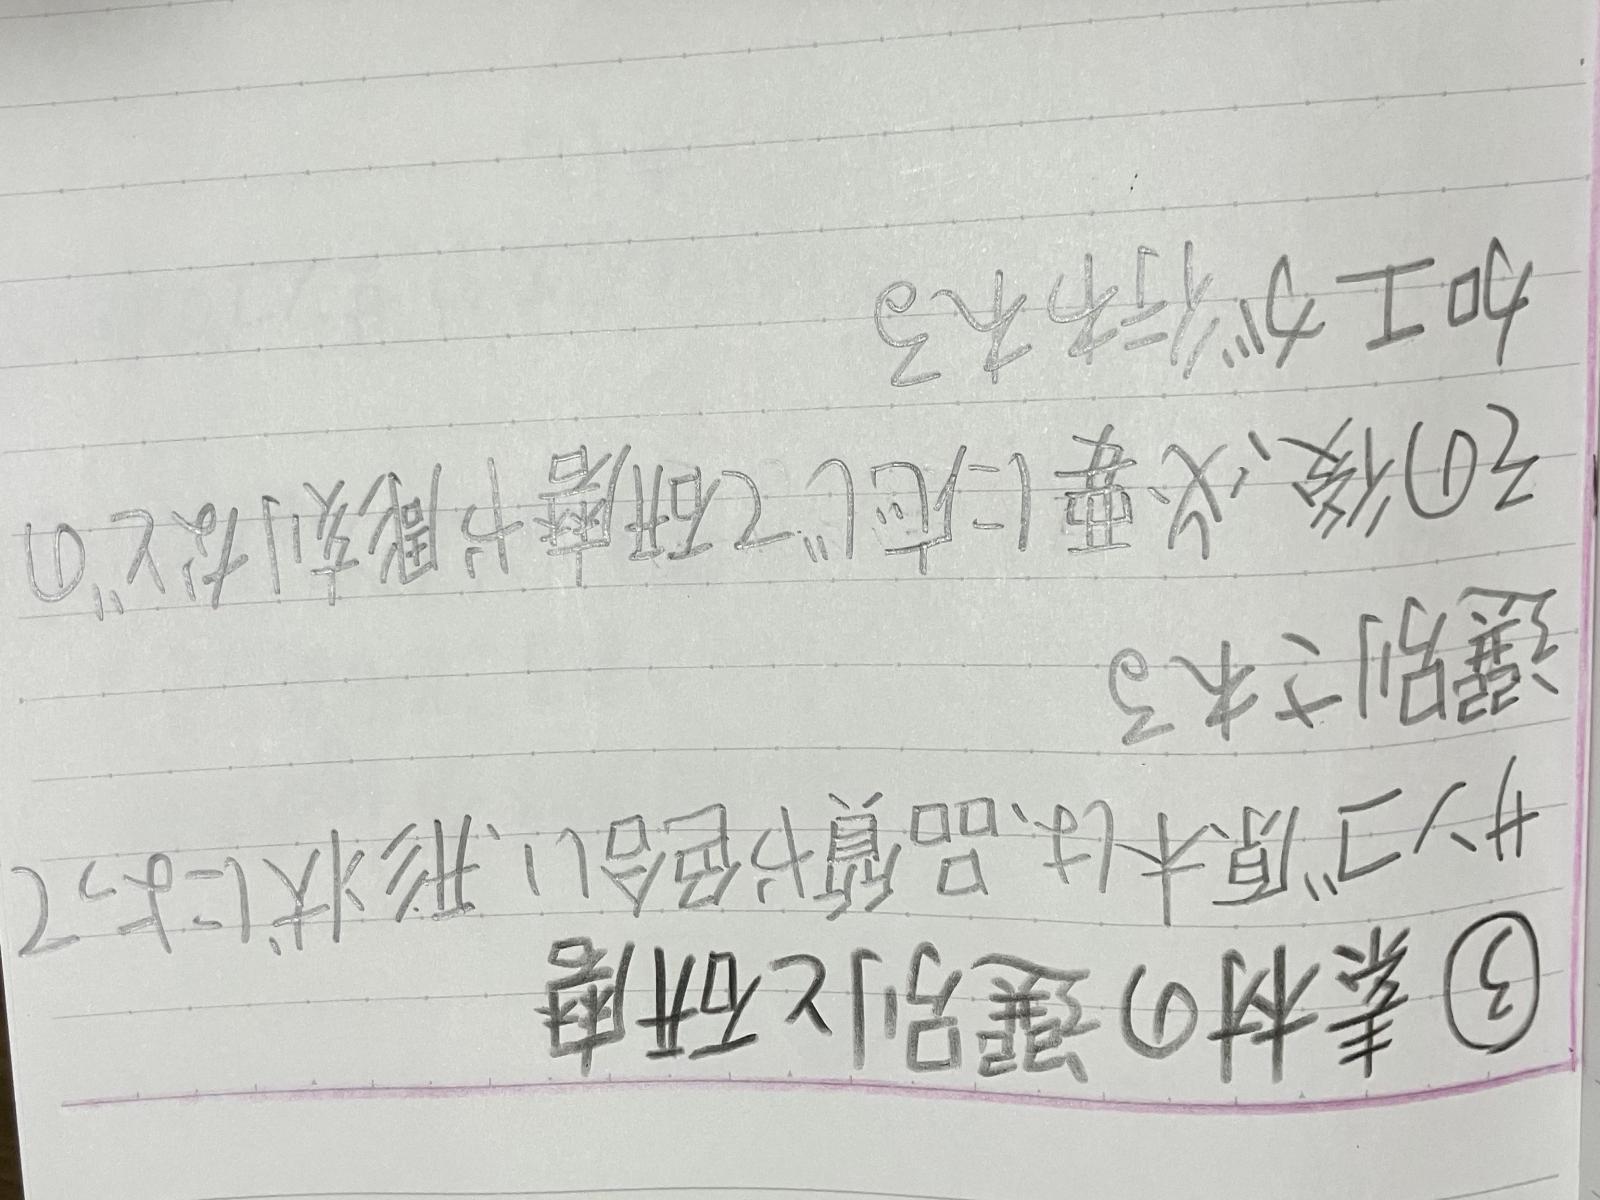 ③ 素材の選別と研磨
サンゴ原木は、品質や色合い、形状によって
選別される
その後、必要に応じて研磨や彫刻などの
加工が行われる